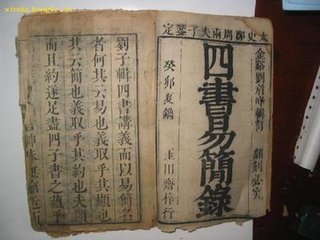 太史鄭周兩夫子鑒定
金谿劉
四書易簡錄
翻刻必究
癸卯夏鐫
玉田齋梓行
劉子輯四書講義而以易簡名
者何其云易也義取乎其顯也
其云簡也義取乎其約也夫顯
而且約遂足盡四子書之蘊乎